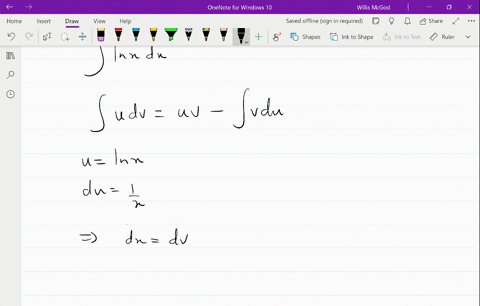 OneNote for Windows 10
Saved offline (sign in required)
Willis McGod
Home Insert Draw View Help
Share
Shapes Ink to Shape Ink to Text Ruler
∫ ln x dx
∫ u dv = uv - ∫ v du
u = ln x
du = 1/x
⇒ dx = dv